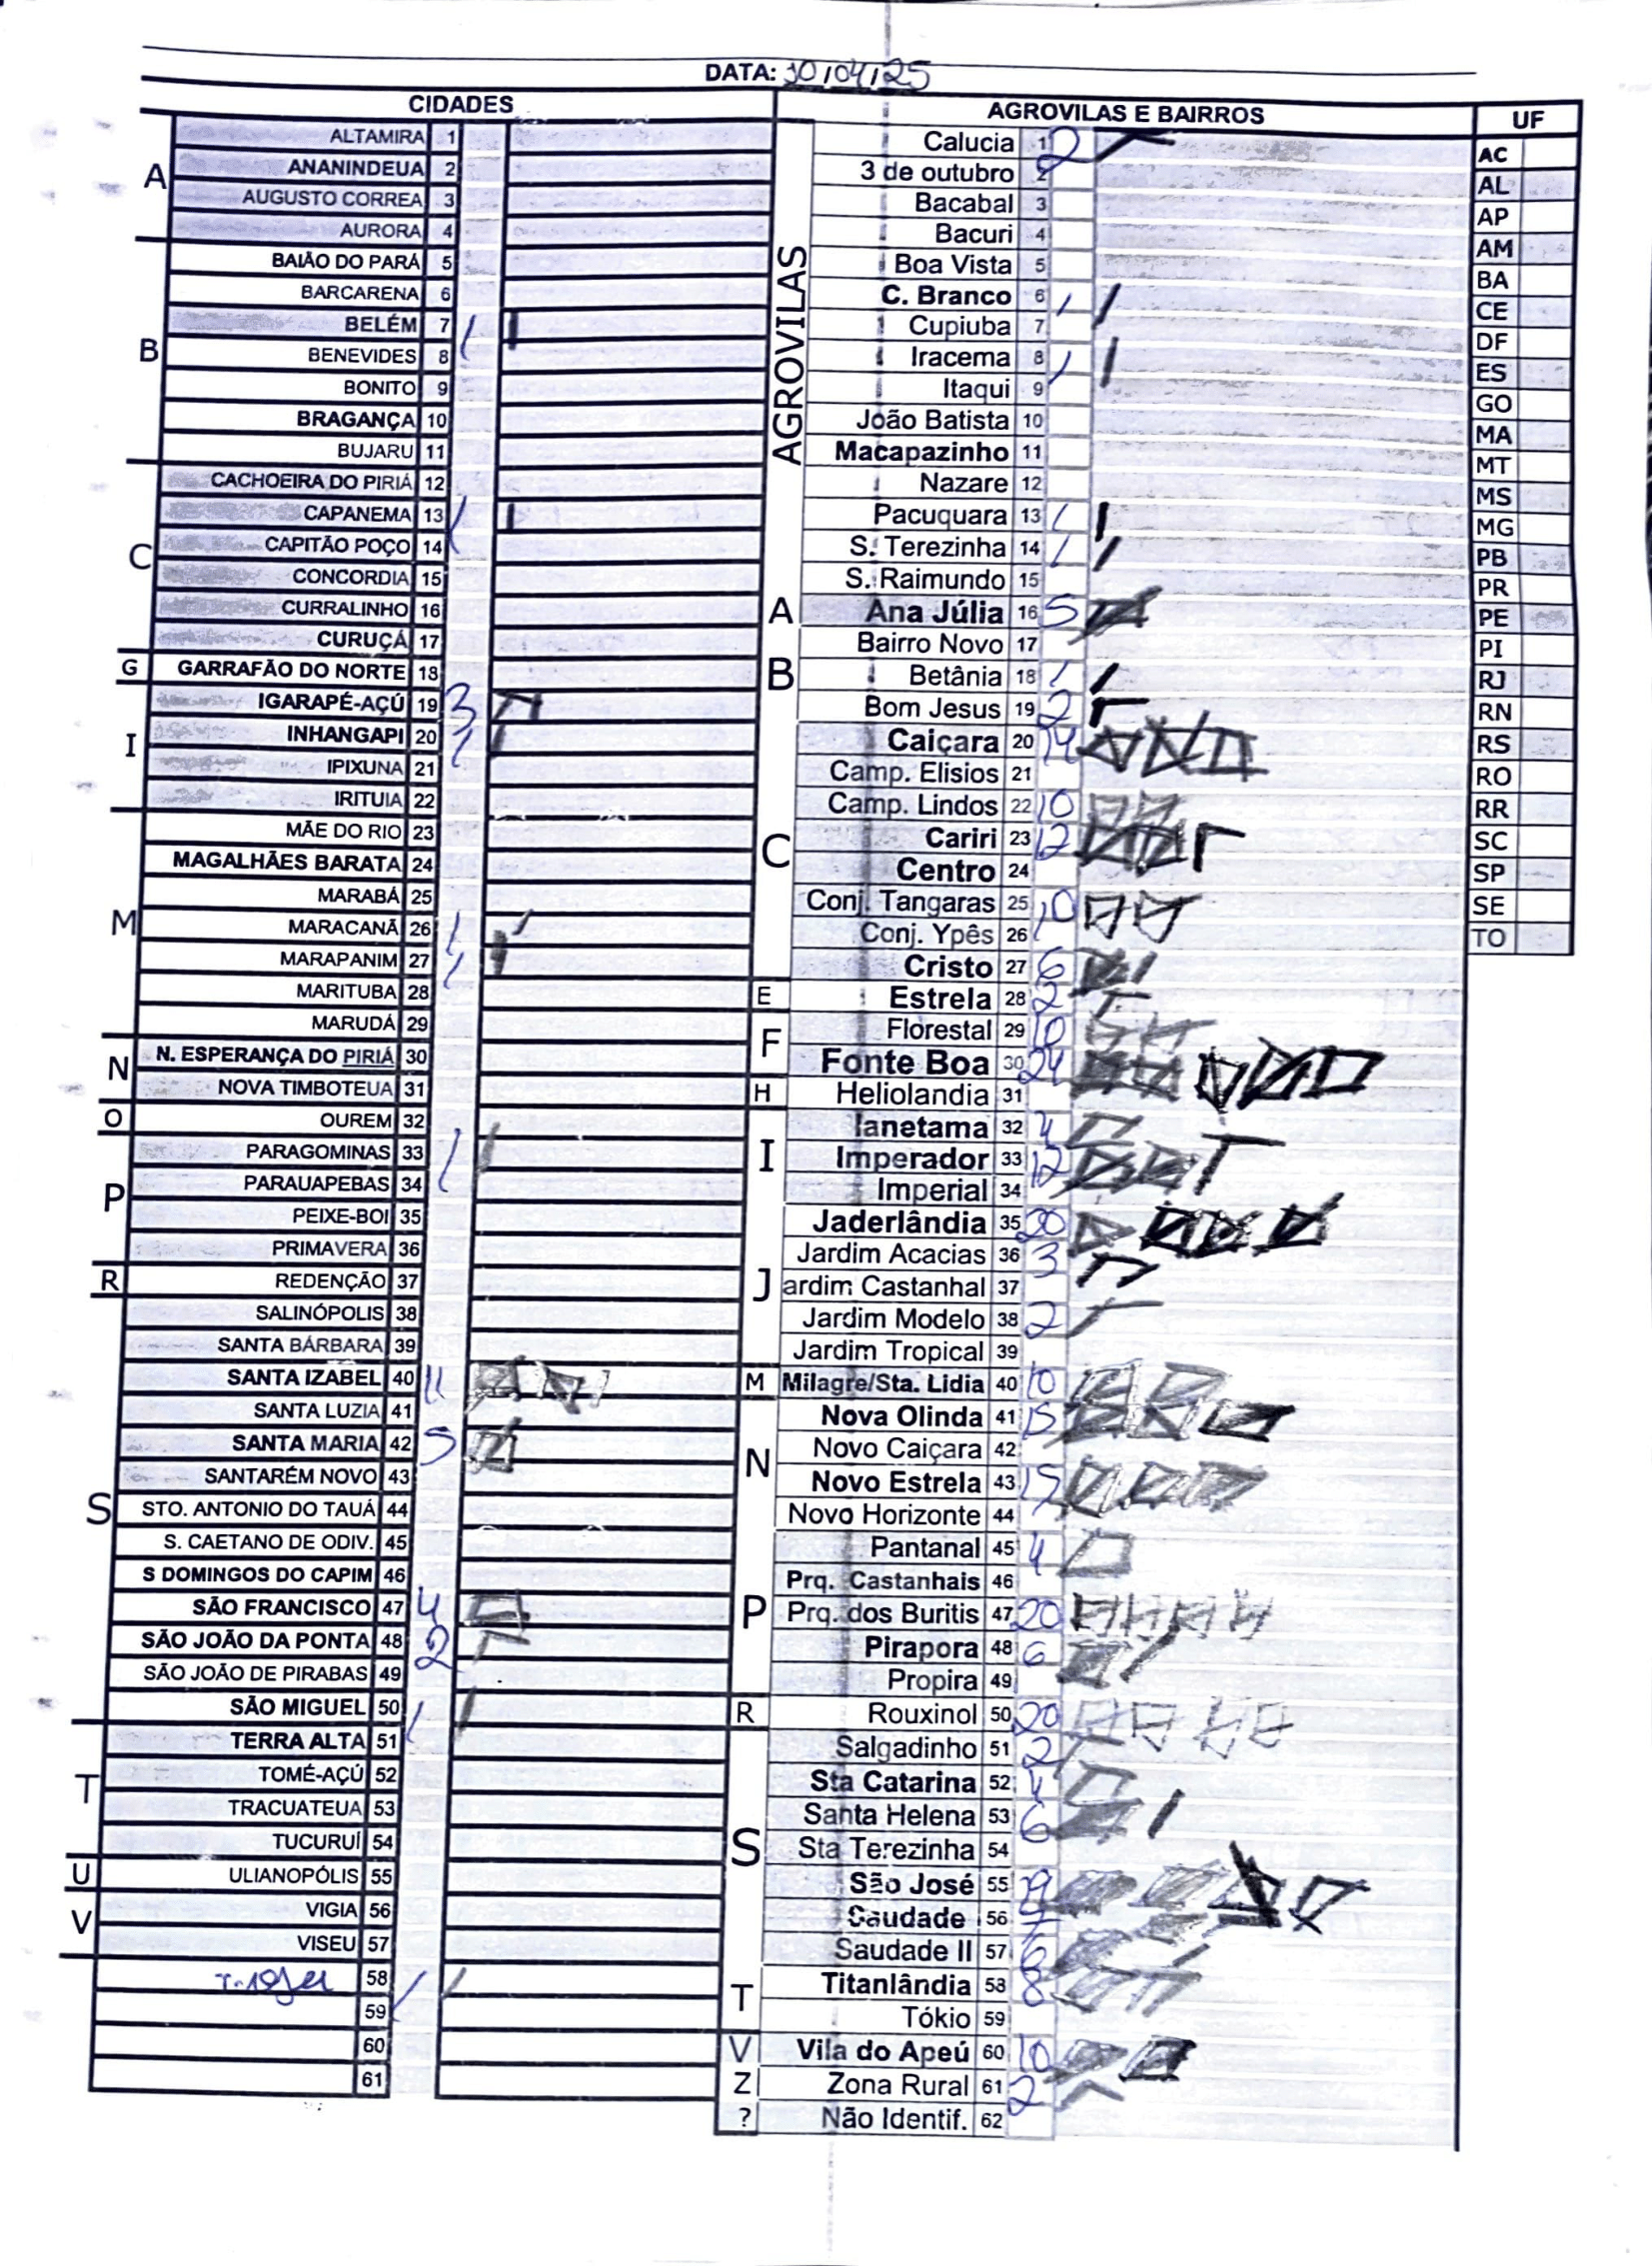 DATA: 30/04/25
CIDADES
A
ALTAMIRA 1
ANANINDEUA 2
AUGUSTO CORREA 3
AURORA 4
B
BAIÃO DO PARÁ 5
BARCARENA 6
BELÉM 7 1
BENEVIDES 8
BONITO 9
BRAGANÇA 10
BUJARU 11
C
CACHOEIRA DO PIRIÁ 12
CAPANEMA 13 1
CAPITÃO POÇO 14
CONCORDIA 15
CURRALINHO 16
CURUÇÁ 17
G
GARRAFÃO DO NORTE 18
I
IGARAPÉ-AÇÚ 19 3
INHANGAPI 20 1
IPIXUNA 21
IRITUIA 22
M
MÃE DO RIO 23
MAGALHÃES BARATA 24
MARABÁ 25
MARACANÃ 26 1
MARAPANIM 27 1
MARITUBA 28
MARUDÁ 29
N
N. ESPERANÇA DO PIRIÁ 30
NOVA TIMBOTEUA 31
O
OUREM 32
P
PARAGOMINAS 33 1
PARAUAPEBAS 34
PEIXE-BOI 35
PRIMAVERA 36
R
REDENÇÃO 37
S
SALINÓPOLIS 38
SANTA BÁRBARA 39
SANTA IZABEL 40 11
SANTA LUZIA 41
SANTA MARIA 42 5
SANTARÉM NOVO 43
STO. ANTONIO DO TAUÁ 44
S. CAETANO DE ODIV. 45
S DOMINGOS DO CAPIM 46
SÃO FRANCISCO 47 4
SÃO JOÃO DA PONTA 48 2
SÃO JOÃO DE PIRABAS 49
SÃO MIGUEL 50 1
T
TERRA ALTA 51
TOMÉ-AÇÚ 52
TRACUATEUA 53
TUCURUÍ 54
U
ULIANOPÓLIS 55
V
VIGIA 56
VISEU 57
58 1
59
60
61
AGROVILAS E BAIRROS
AGROVILAS
Calucia 1 2
3 de outubro 2
Bacabal 3
Bacuri 4
Boa Vista 5
C. Branco 6 1
Cupiuba 7
Iracema 8 1
Itaqui 9
João Batista 10
Macapazinho 11
Nazare 12
Pacuquara 13 1
S. Terezinha 14 1
S. Raimundo 15
A
Ana Júlia 16 5
B
Bairro Novo 17
Betânia 18 1
Bom Jesus 19 2
C
Caiçara 20 14
Camp. Elisios 21
Camp. Lindos 22 10
Cariri 23 12
Centro 24
Conj. Tangaras 25 10
Conj. Ypês 26
Cristo 27 6
E
Estrela 28 2
F
Florestal 29 10
Fonte Boa 30 24
H
Heliolandia 31
I
Ianetama 32 4
Imperador 33 12
Imperial 34
J
Jaderlândia 35 20
Jardim Acacias 36 3
ardim Castanhal 37
Jardim Modelo 38 2
Jardim Tropical 39
M
Milagre/Sta. Lidia 40 10
N
Nova Olinda 41 15
Novo Caiçara 42
Novo Estrela 43 15
Novo Horizonte 44
P
Pantanal 45 4
Prq. Castanhais 46
Prq. dos Buritis 47 20
Pirapora 48 6
Propira 49
R
Rouxinol 50 20
S
Salgadinho 51 2
Sta Catarina 52 4
Santa Helena 53 6
Sta Terezinha 54
São José 55 19
Saudade 56
Saudade II 57 6
T
Titanlândia 58 8
Tókio 59
V
Vila do Apeú 60 10
Z
Zona Rural 61 2
?
Não Identif. 62
UF
AC
AL
AP
AM
BA
CE
DF
ES
GO
MA
MT
MS
MG
PB
PR
PE
PI
RJ
RN
RS
RO
RR
SC
SP
SE
TO